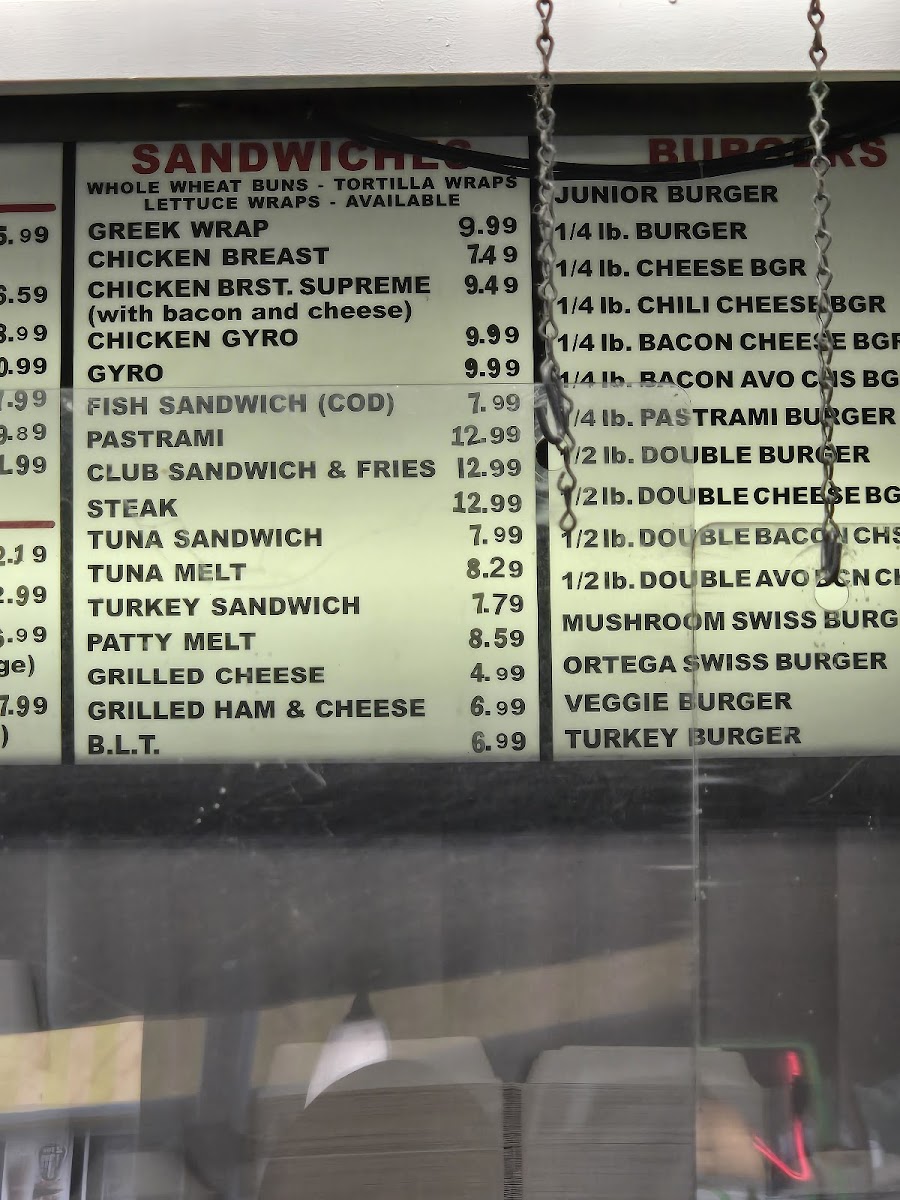 5.99
6.59
8.99
0.99
7.99
9.89
1.99
2.19
2.99
5.99
ge)
7.99
)
SANDWICHES
WHOLE WHEAT BUNS - TORTILLA WRAPS
LETTUCE WRAPS - AVAILABLE
GREEK WRAP 9.99
CHICKEN BREAST 7.49
CHICKEN BRST. SUPREME 9.49
(with bacon and cheese)
CHICKEN GYRO 9.99
GYRO 9.99
FISH SANDWICH (COD) 7.99
PASTRAMI 12.99
CLUB SANDWICH & FRIES 12.99
STEAK 12.99
TUNA SANDWICH 7.99
TUNA MELT 8.29
TURKEY SANDWICH 7.79
PATTY MELT 8.59
GRILLED CHEESE 4.99
GRILLED HAM & CHEESE 6.99
B.L.T. 6.99
BURGERS
JUNIOR BURGER
1/4 lb. BURGER
1/4 lb. CHEESE BGR
1/4 lb. CHILI CHEESE BGR
1/4 lb. BACON CHEESE BGR
1/4 lb. BACON AVO CHS BG
1/4 lb. PASTRAMI BURGER
1/2 lb. DOUBLE BURGER
1/2 lb. DOUBLE CHEESE BG
1/2 lb. DOUBLE BACON CHS
1/2 lb. DOUBLE AVO BCN CH
MUSHROOM SWISS BURG
ORTEGA SWISS BURGER
VEGGIE BURGER
TURKEY BURGER